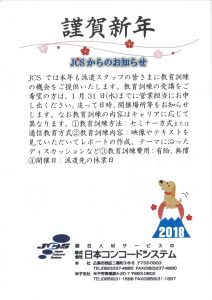 謹賀新年
JCSからのお知らせ
JCSでは本年も派遣スタッフの皆さまに教育訓練
の機会をご提供いたします。教育訓練の受講をご
希望の方は、1月31日(水)までに営業担当にお申
し出ください。追って日時、開催場所等をお知らせし
ます。なお教育訓練の内容はキャリアに応じて
異なります。①教育訓練方法:セミナー方式または
通信教育方式②教育訓練内容:映像やテキストを
見ていただいてレポートの作成、テーマに沿った
ディスカッションなど③教育訓練費用:有給、無償
④開催日:派遣先の休業日
2018
JCS
総合人材サービスの
株式会社 日本コンコードシステム